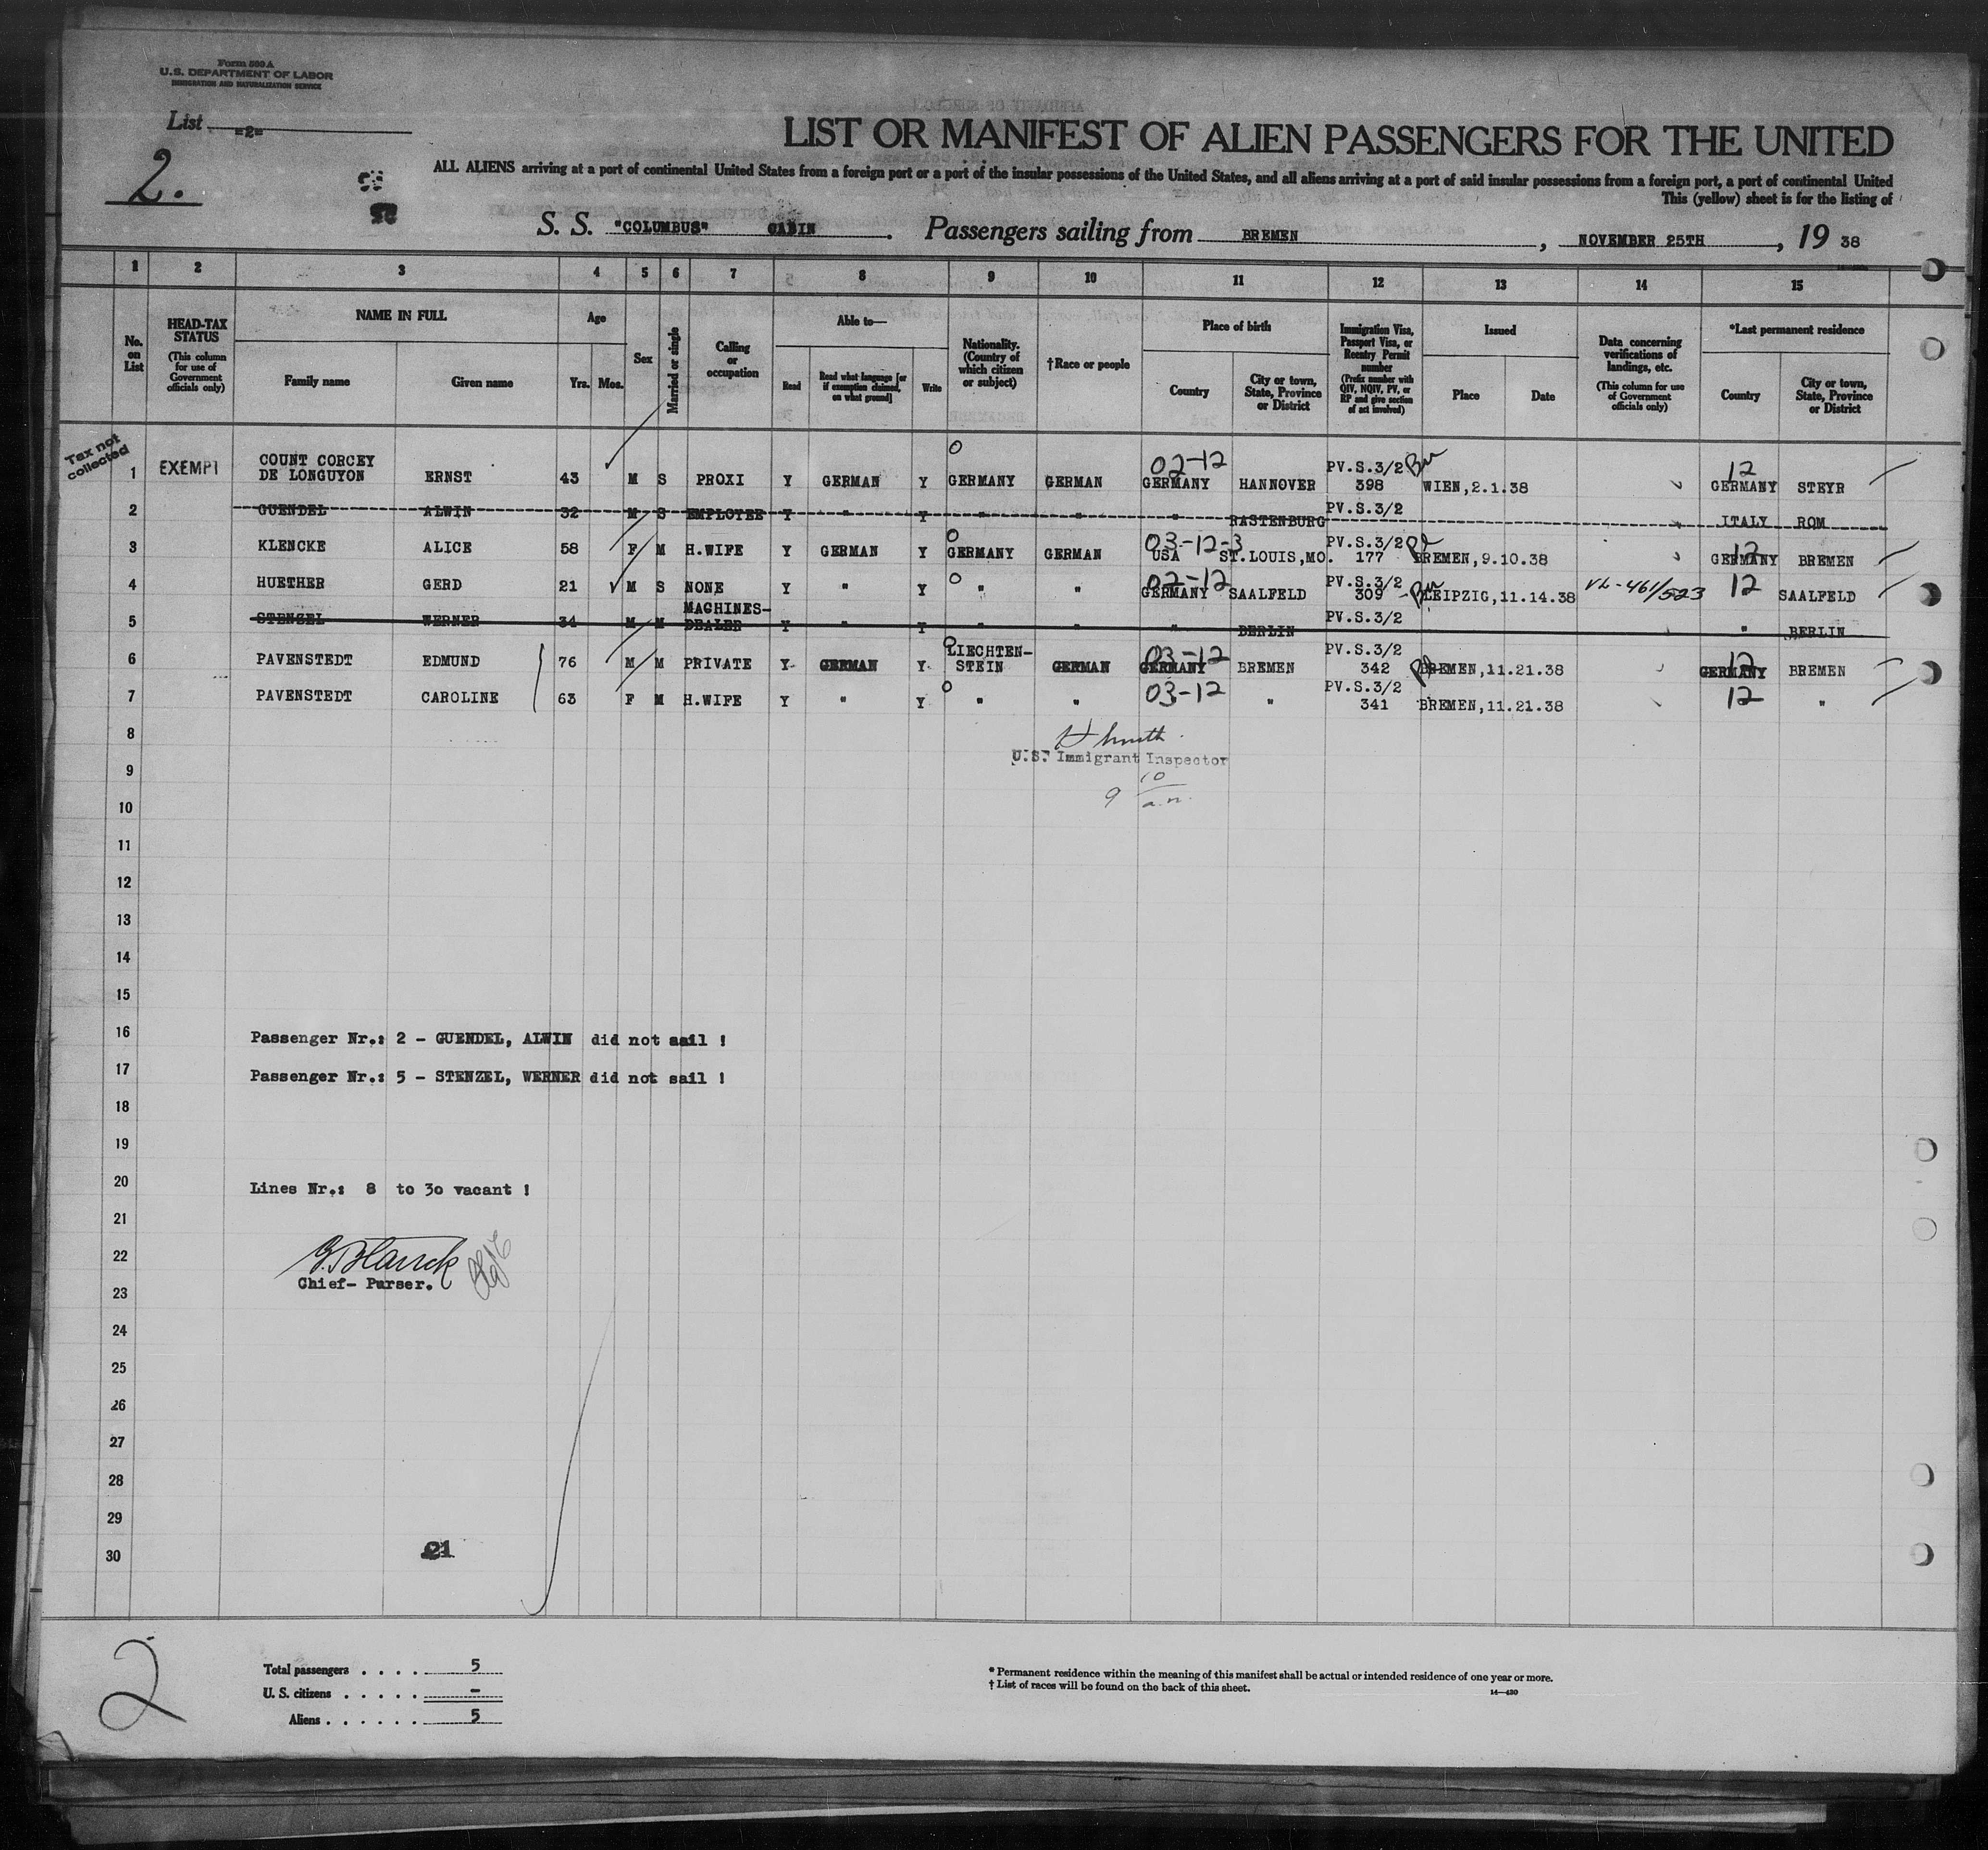 Form 500 A
U.S. DEPARTMENT OF LABOR
IMMIGRATION AND NATURALIZATION SERVICE
List -2-
2.
LIST OR MANIFEST OF ALIEN PASSENGERS FOR THE UNITED
ALL ALIENS arriving at a port of continental United States from a foreign port or a port of the insular possessions of the United States, and all aliens arriving at a port of said insular possessions from a foreign port, a port of continental United
This (yellow) sheet is for the listing of
S. S. "COLUMBUS" CABIN. Passengers sailing from BREMEN, NOVEMBER 25TH, 19 38
1 2 3 4 5 6 7 8 9 10 11 12 13 14 15
No. on List
HEAD-TAX STATUS (This column for use of Government officials only)
NAME IN FULL
Family name
Given name
Age
Yrs. Mos.
Sex
Married or single
Calling or occupation
Able to—
Read
Read what language [or if exemption claimed, on what ground]
Write
Nationality. (Country of which citizen or subject)
†Race or people
Place of birth
Country
City or town, State, Province or District
Immigration Visa, Passport Visa, or Reentry Permit number (Prefix number with QIV, NQIV, PV, or RP and give section of act involved)
Issued
Place
Date
Data concerning verifications of landings, etc. (This column for use of Government officials only)
*Last permanent residence
Country
City or town, State, Province or District
Tax not collected
1 EXEMPT COUNT CORCEY DE LONGUYON ERNST 43 M S PROXI Y GERMAN Y GERMANY GERMAN 02-12 GERMANY HANNOVER PV.S.3/2 398 WIEN,2.1.38 12 GERMANY STEYR
2 GUENDEL ALWIN 32 M S EMPLOYEE Y " Y " " " RASTENBURG PV.S.3/2 ITALY ROM
3 KLENCKE ALICE 58 F M H.WIFE Y GERMAN Y GERMANY GERMAN 03-12-3 USA ST.LOUIS,MO. PV.S.3/2 177 BREMEN,9.10.38 12 GERMANY BREMEN
4 HUETHER GERD 21 M S NONE Y " Y " " 02-12 GERMANY SAALFELD PV.S.3/2 309 LEIPZIG,11.14.38 VL-461/523 12 SAALFELD
5 STENZEL WERNER 34 M M MACHINES-DEALER Y " Y " " " BERLIN PV.S.3/2 " BERLIN
6 PAVENSTEDT EDMUND 76 M M PRIVATE Y GERMAN Y LIECHTEN-STEIN GERMAN 03-12 GERMANY BREMEN PV.S.3/2 342 BREMEN,11.21.38 12 GERMANY BREMEN
7 PAVENSTEDT CAROLINE 63 F M H.WIFE Y " Y " " 03-12 " PV.S.3/2 341 BREMEN,11.21.38 12 "
8
U.S. Immigrant Inspector
9
9 10 a.m.
10
11
12
13
14
15
16 Passenger Nr.: 2 - GUENDEL, ALWIN did not sail !
17 Passenger Nr.: 5 - STENZEL, WERNER did not sail !
18
19
20 Lines Nr.: 8 to 30 vacant !
21
22
Chief- Purser.
23
24
25
26
27
28
29
30
21
2
Total passengers . . . . 5
U. S. citizens . . . . . -
Aliens . . . . . . 5
* Permanent residence within the meaning of this manifest shall be actual or intended residence of one year or more.
† List of races will be found on the back of this sheet.
14—430